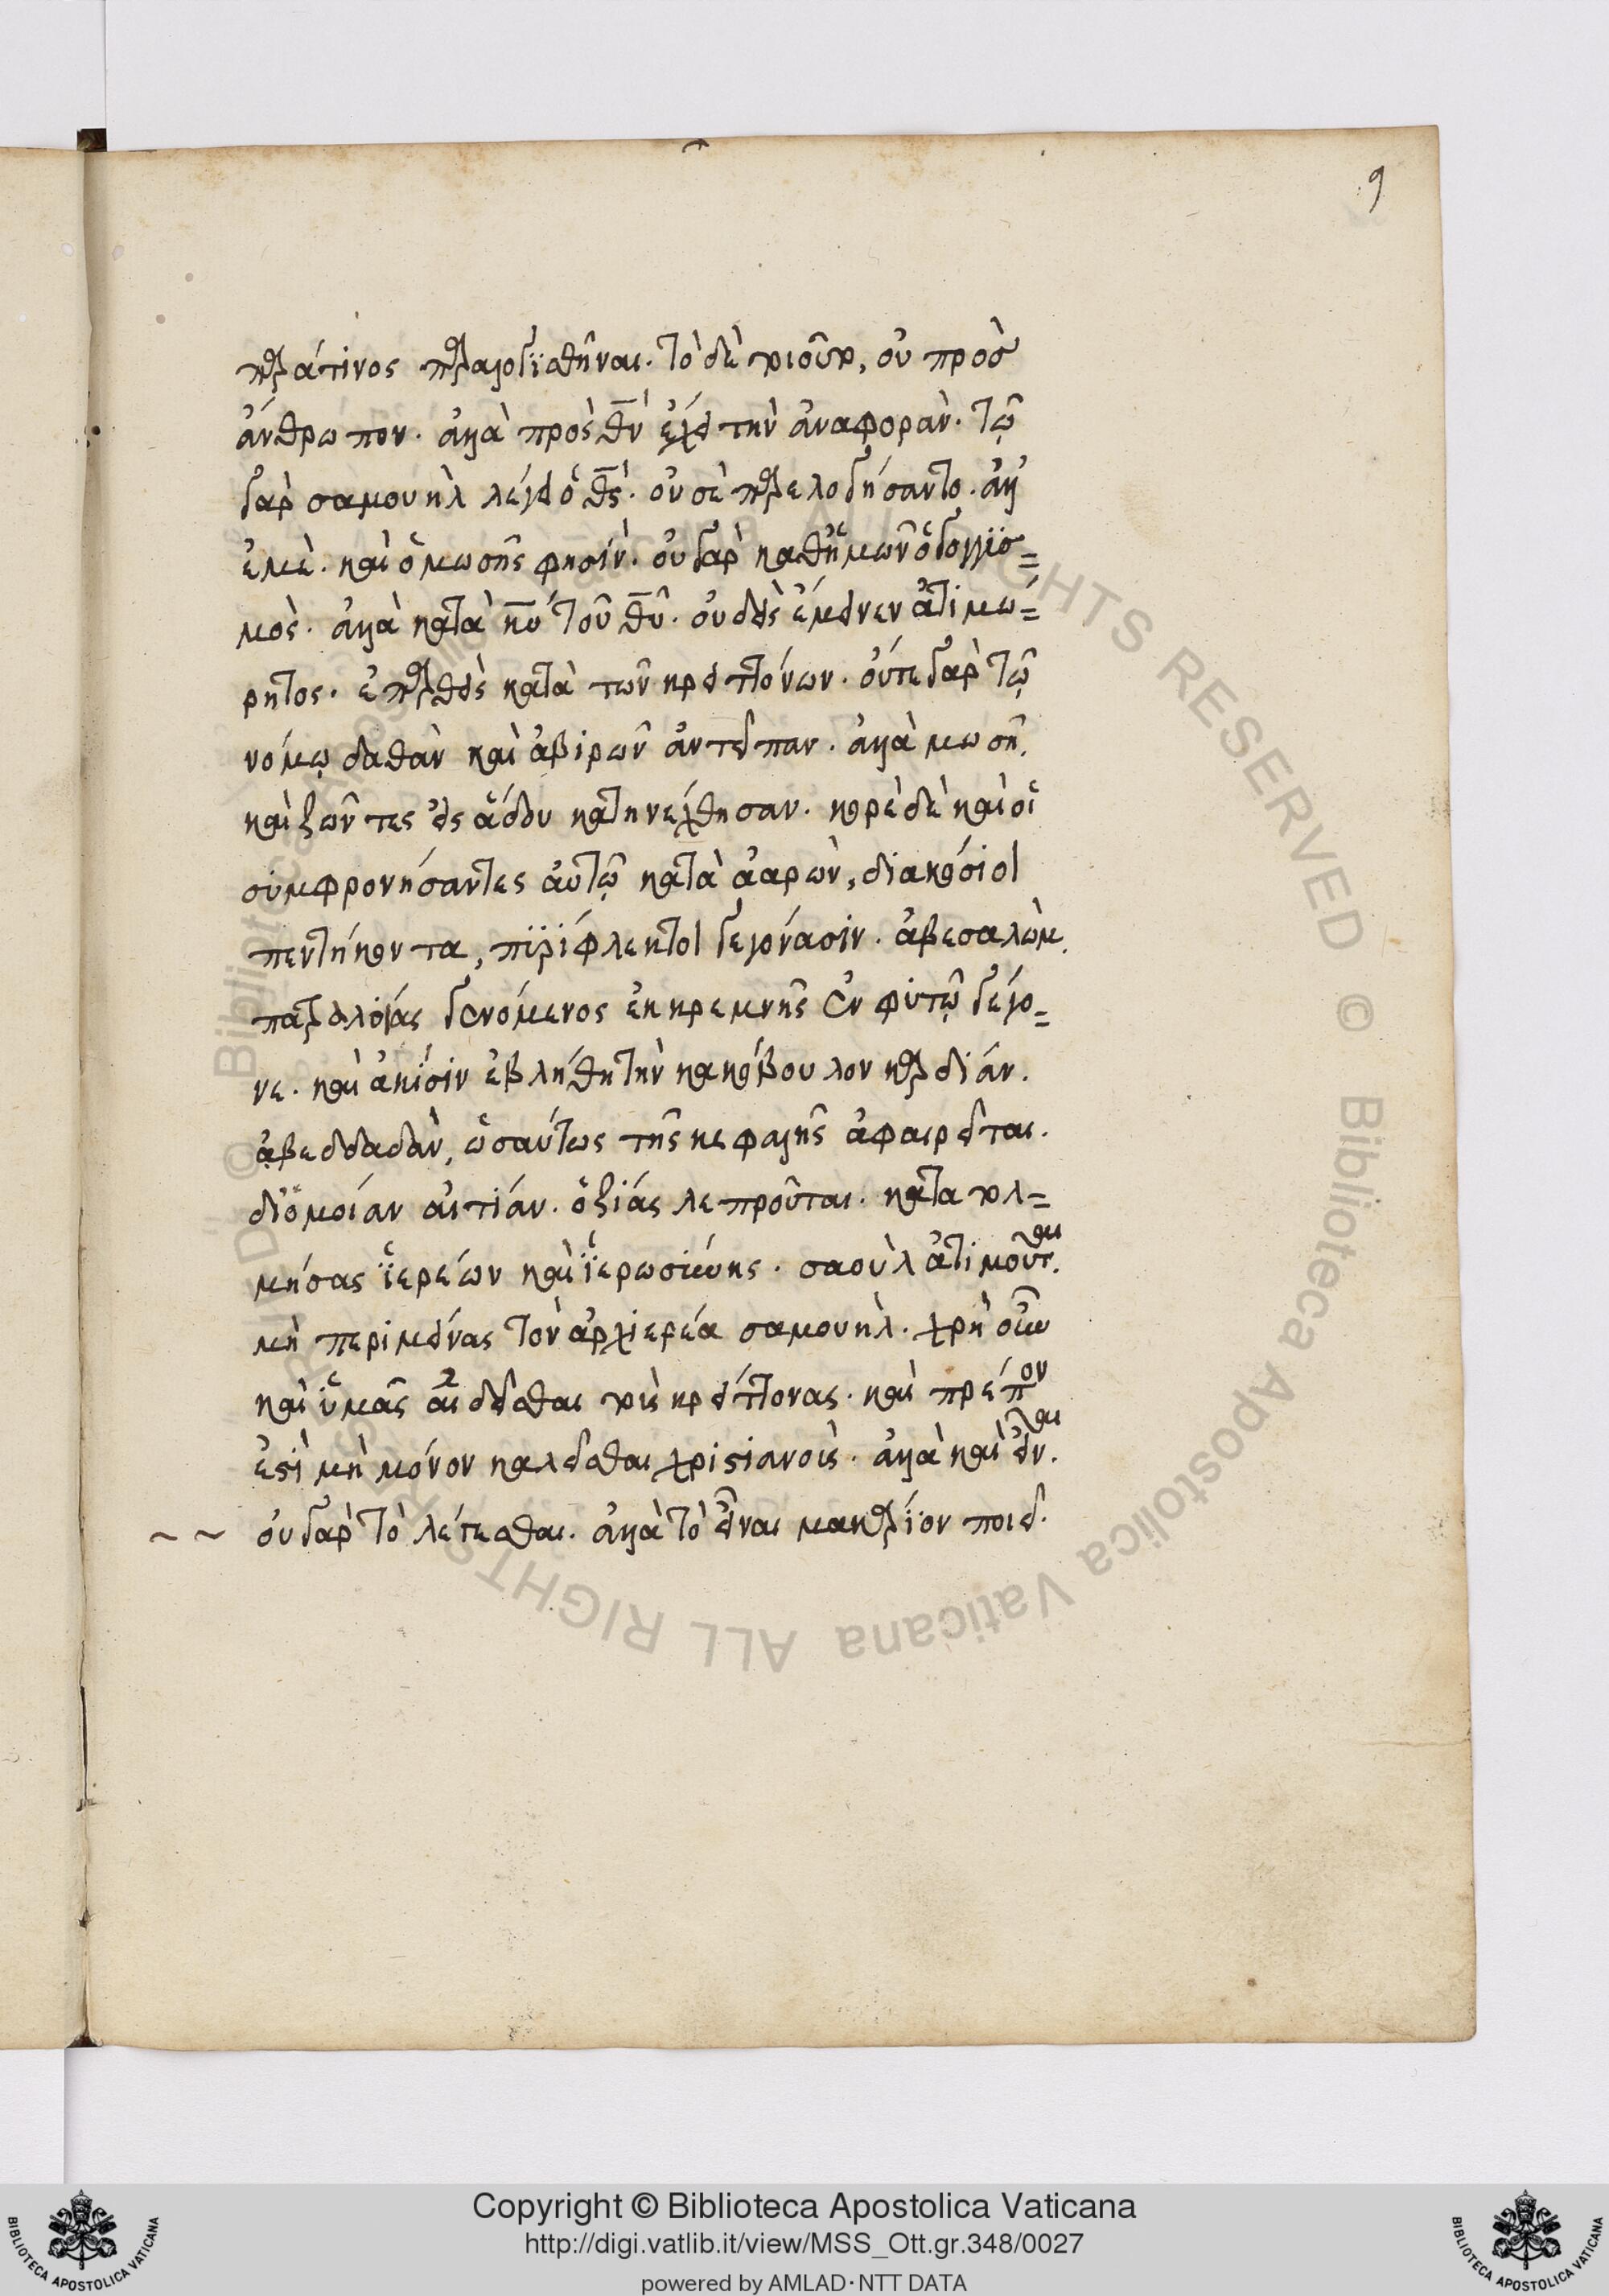 9
παρά τινος παραλογισθῆναι. τὸ δὲ τοιοῦτο, οὐ πρὸς
ἄνθρωπον. ἀλλὰ πρὸς θ̅ν̅ ἔχει τὴν ἀναφοράν. τῷ
γὰρ σαμουὴλ λέγει ὁ θ̅ς̅. οὐ σὲ παρελογήσαντο. ἀλλ'
ἐμέ. καὶ ὁ μωσῆς φησίν. οὐ γὰρ καθ' ἡμῶν ὁ γογγϋσ=
μὸς. ἀλλὰ κατὰ κ̅υ̅ τοῦ θ̅υ̅. οὐδεὶς ἔμεινεν ἀτιμώ=
ρητος. ἐπαρθεὶς κατὰ τῶν κρειττόνων. οὔτε γὰρ τῷ
νόμῳ δαθὰν καὶ ἀβιρῶν ἀντεῖπαν. ἀλλὰ μωσῆ.
καὶ ζῶντες εἰς ἅδου κατηνέχθησαν. κορὲ δὲ καὶ οἱ
συμφρονήσαντες αὐτῷ κατὰ ἀαρὼν, διακόσιοι
πεντήκοντα, πϋρίφλεκτοι γεγόνασιν. ἀβεσαλὼμ.
πατραλοίας γενόμενος ἐκκρεμνῆς ἐν φυτῷ γέγο=
νε. καὶ ἀκίσιν ἐβλήθη τὴν κακόβουλον καρδίαν.
ἀβεδδαδὰν, ὡσαύτως τῆς κεφαλῆς ἀφαιρεῖται.
δι' ὁμοίαν αἰτίαν. ὀζίας λεπροῦται. κατατολ=
μήσας ἱερέων καὶ ἱερωσύνης. σαοὺλ ἀτιμοῦται.
μὴ περιμείνας τὸν ἀρχιερέα σαμουήλ. χρὴ οὖν
καὶ ὑμᾶς αἰδεῖσθαι τοὺς κρείττονας. καὶ πρέπον
ἐστὶ μὴ μόνον καλεῖσθαι χριστιανούς. ἀλλὰ καὶ εἶναι.
~ ~ οὐ γὰρ τὸ λέγεσθαι. ἀλλὰ τὸ εἶναι μακάριον ποιεῖ.
© Biblioteca Apostolica Vaticana ALL RIGHTS RESERVED
Copyright © Biblioteca Apostolica Vaticana
http://digi.vatlib.it/view/MSS_Ott.gr.348/0027
powered by AMLAD·NTT DATA
BIBLIOTECA APOSTOLICA VATICANA
BIBLIOTECA APOSTOLICA VATICANA